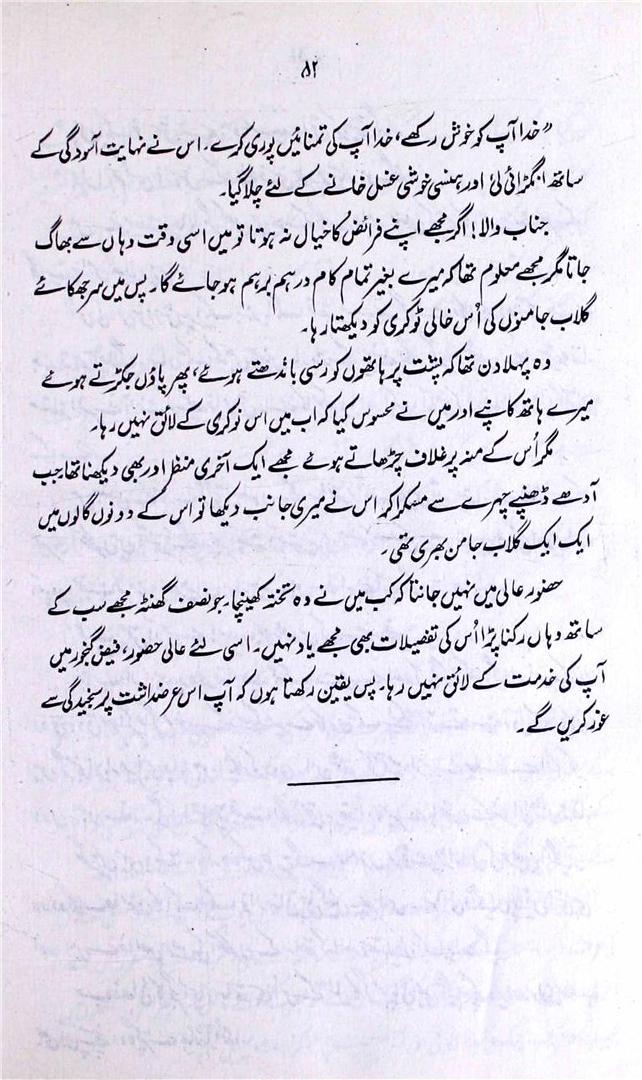 ۸۲
"خدا آپ کو خوش رکھے، خدا آپ کی تمنائیں پوری کرے۔ اس نے نہایت آسودگی کے
ساتھ انگڑائی لی اور ہنسی خوشی غسل خانے کے لئے چلا گیا۔
جناب والا! اگر مجھے اپنے فرائض کا خیال نہ ہوتا تو میں اسی وقت وہاں سے بھاگ
جاتا مگر مجھے معلوم تھا کہ میرے بغیر تمام کام درہم برہم ہو جائے گا۔ پس میں سر جھکائے
گلاب جامنوں کی اُس خالی ٹوکری کو دیکھتا رہا۔
وہ پہلا دن تھا کہ پشت پر ہاتھوں کو رسی باندھتے ہوئے، پھر پاؤں جکڑتے ہوئے
میرے ہاتھ کانپے اور میں نے محسوس کیا کہ اب میں اس نوکری کے لائق نہیں رہا۔
مگر اُس کے منہ پر غلاف چڑھاتے ہوئے مجھے ایک آخری منظر اور بھی دیکھنا تھا جب
آدھے ڈھنپے چہرے سے مسکرا کر اس نے میری جانب دیکھا تو اس کے دونوں گالوں میں
ایک ایک گلاب جامن بھری تھی۔
حضور عالی میں نہیں جانتا کہ کب میں نے وہ تختہ کھینچا۔ جو نصف گھنٹہ مجھے سب کے
ساتھ وہاں رکنا پڑا اُس کی تفصیلات بھی مجھے یاد نہیں۔ اسی لئے عالی حضور، فیض گنجور میں
آپ کی خدمت کے لائق نہیں رہا۔ پس یقین رکھتا ہوں کہ آپ اس عرضداشت پر سنجیدگی سے
غور کریں گے۔